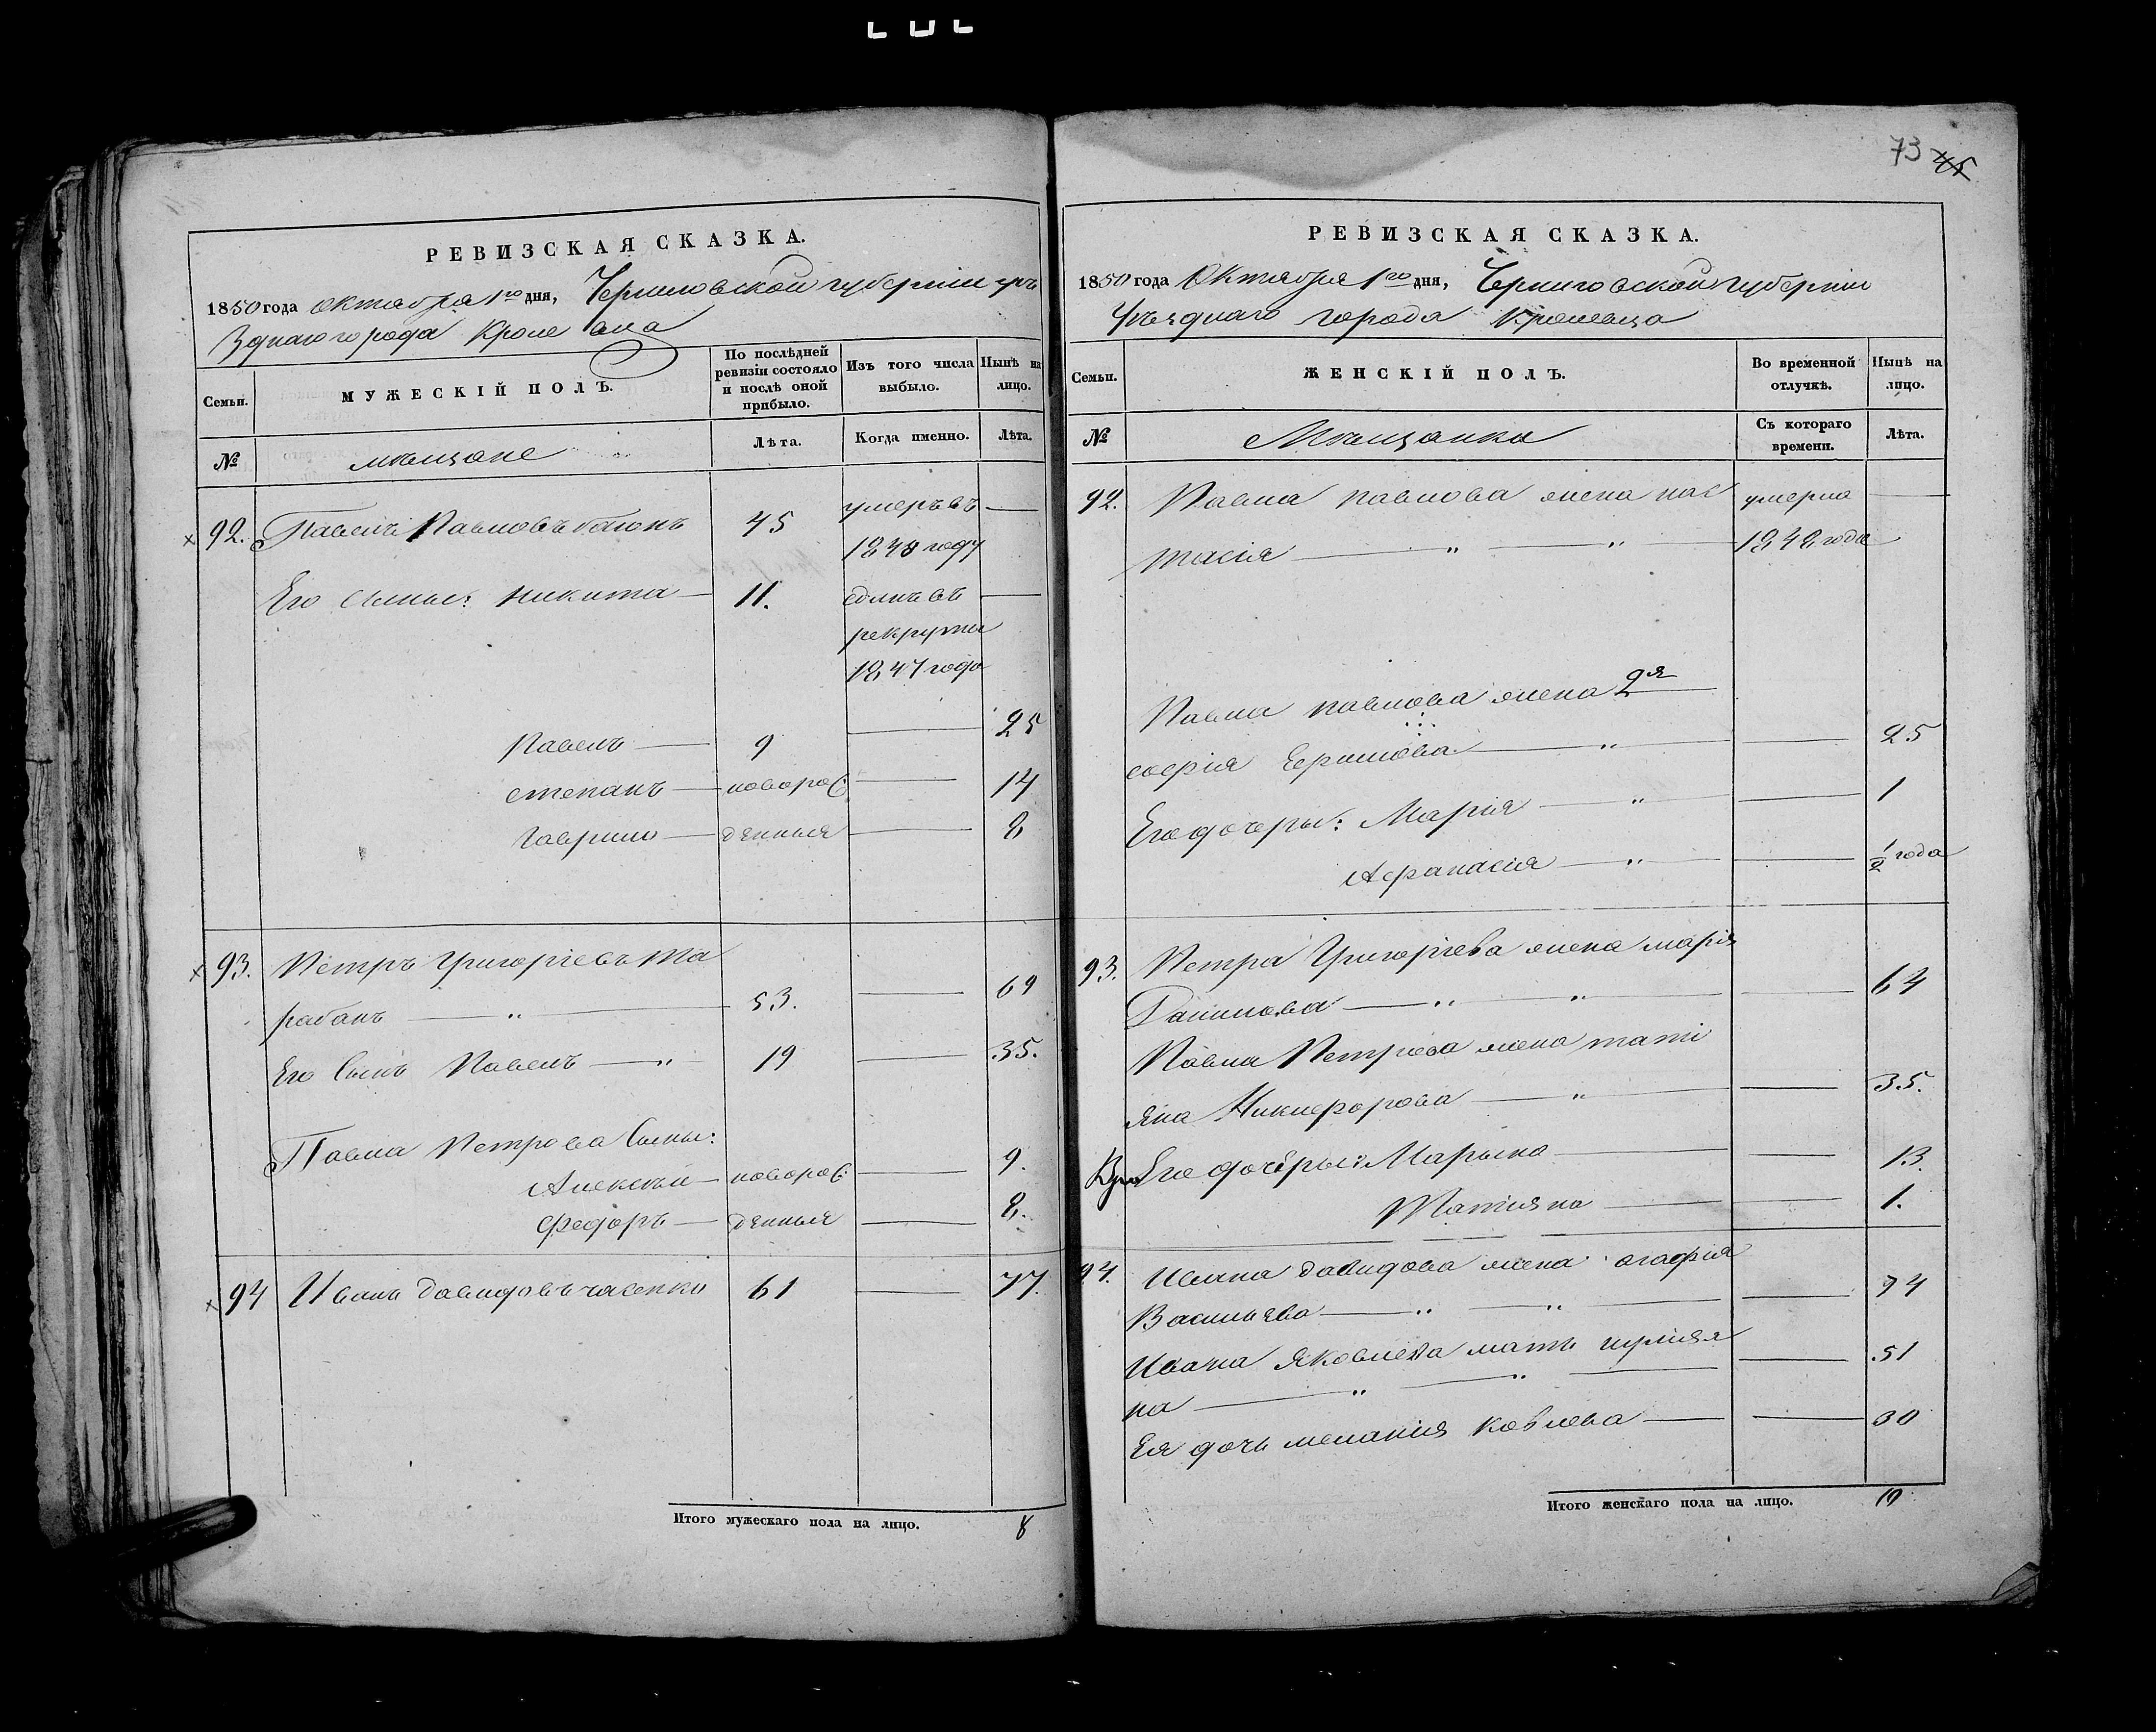 РЕВИЗСКАЯ СКАЗКА.
1850 года Октября 1го дня, Черниговской губерніи уѣ
зднаго города Кролевца
Семьи.
МУЖЕСКІЙ ПОЛЪ.
По послѣдней ревизіи состояло и послѣ оной прибыло.
Изъ того числа выбыло.
Нынѣ на лицо.
№
мѣщане
Лѣта.
Когда именно.
Лѣта.
92. Павелъ Павловъ 45 умеръ въ —
1849 году
Его сыны: Никита — 11. сданъ въ —
рекруты
1847 года
Павелъ — 9 — 25
степанъ — новорож — 14
Гаврило — денныя — 8
93. Петръ Григоріевъ Та
рабанъ — " — 53. — 69
Его Сынъ Павелъ — " 19 — 35.
Павла Петрова Сыны:
Алексѣй — новорож — 9.
Федоръ — денныя — 8.
94 Иванъ давидовъ часенко 61 — 77.
Итого мужескаго пола на лицо. 8
73 45
РЕВИЗСКАЯ СКАЗКА.
1850 года Октября 1го дня, Черниговской губерніи
Уѣзднаго города Кролевца
Семьи.
ЖЕНСКІЙ ПОЛЪ.
Во временной отлучкѣ.
Нынѣ на лицо.
№
Мѣщанки
Съ котораго времени.
Лѣта.
92. Павла павлова жена нас умерла —
тасія — " — " — 1848 года
Павла павлова жена 2я
софія Ермолова — " — 25
Его дочеры: Марія — " — 1
Афанасія — " — ½ года
93. Петра Григоріева жена марія
Данилова — " — " — 64
Павла Петрова жена таті
яна Никифорова — " — 35.
Его дочеры: Марына — 13.
Татияна — 1.
94. Ивана давидова жена агафія
Васильева — " — " — 74
Ивана Яковлева мать
на — " — " — 51
Ея дочь меланія — 30
Итого женскаго пола на лицо. 10